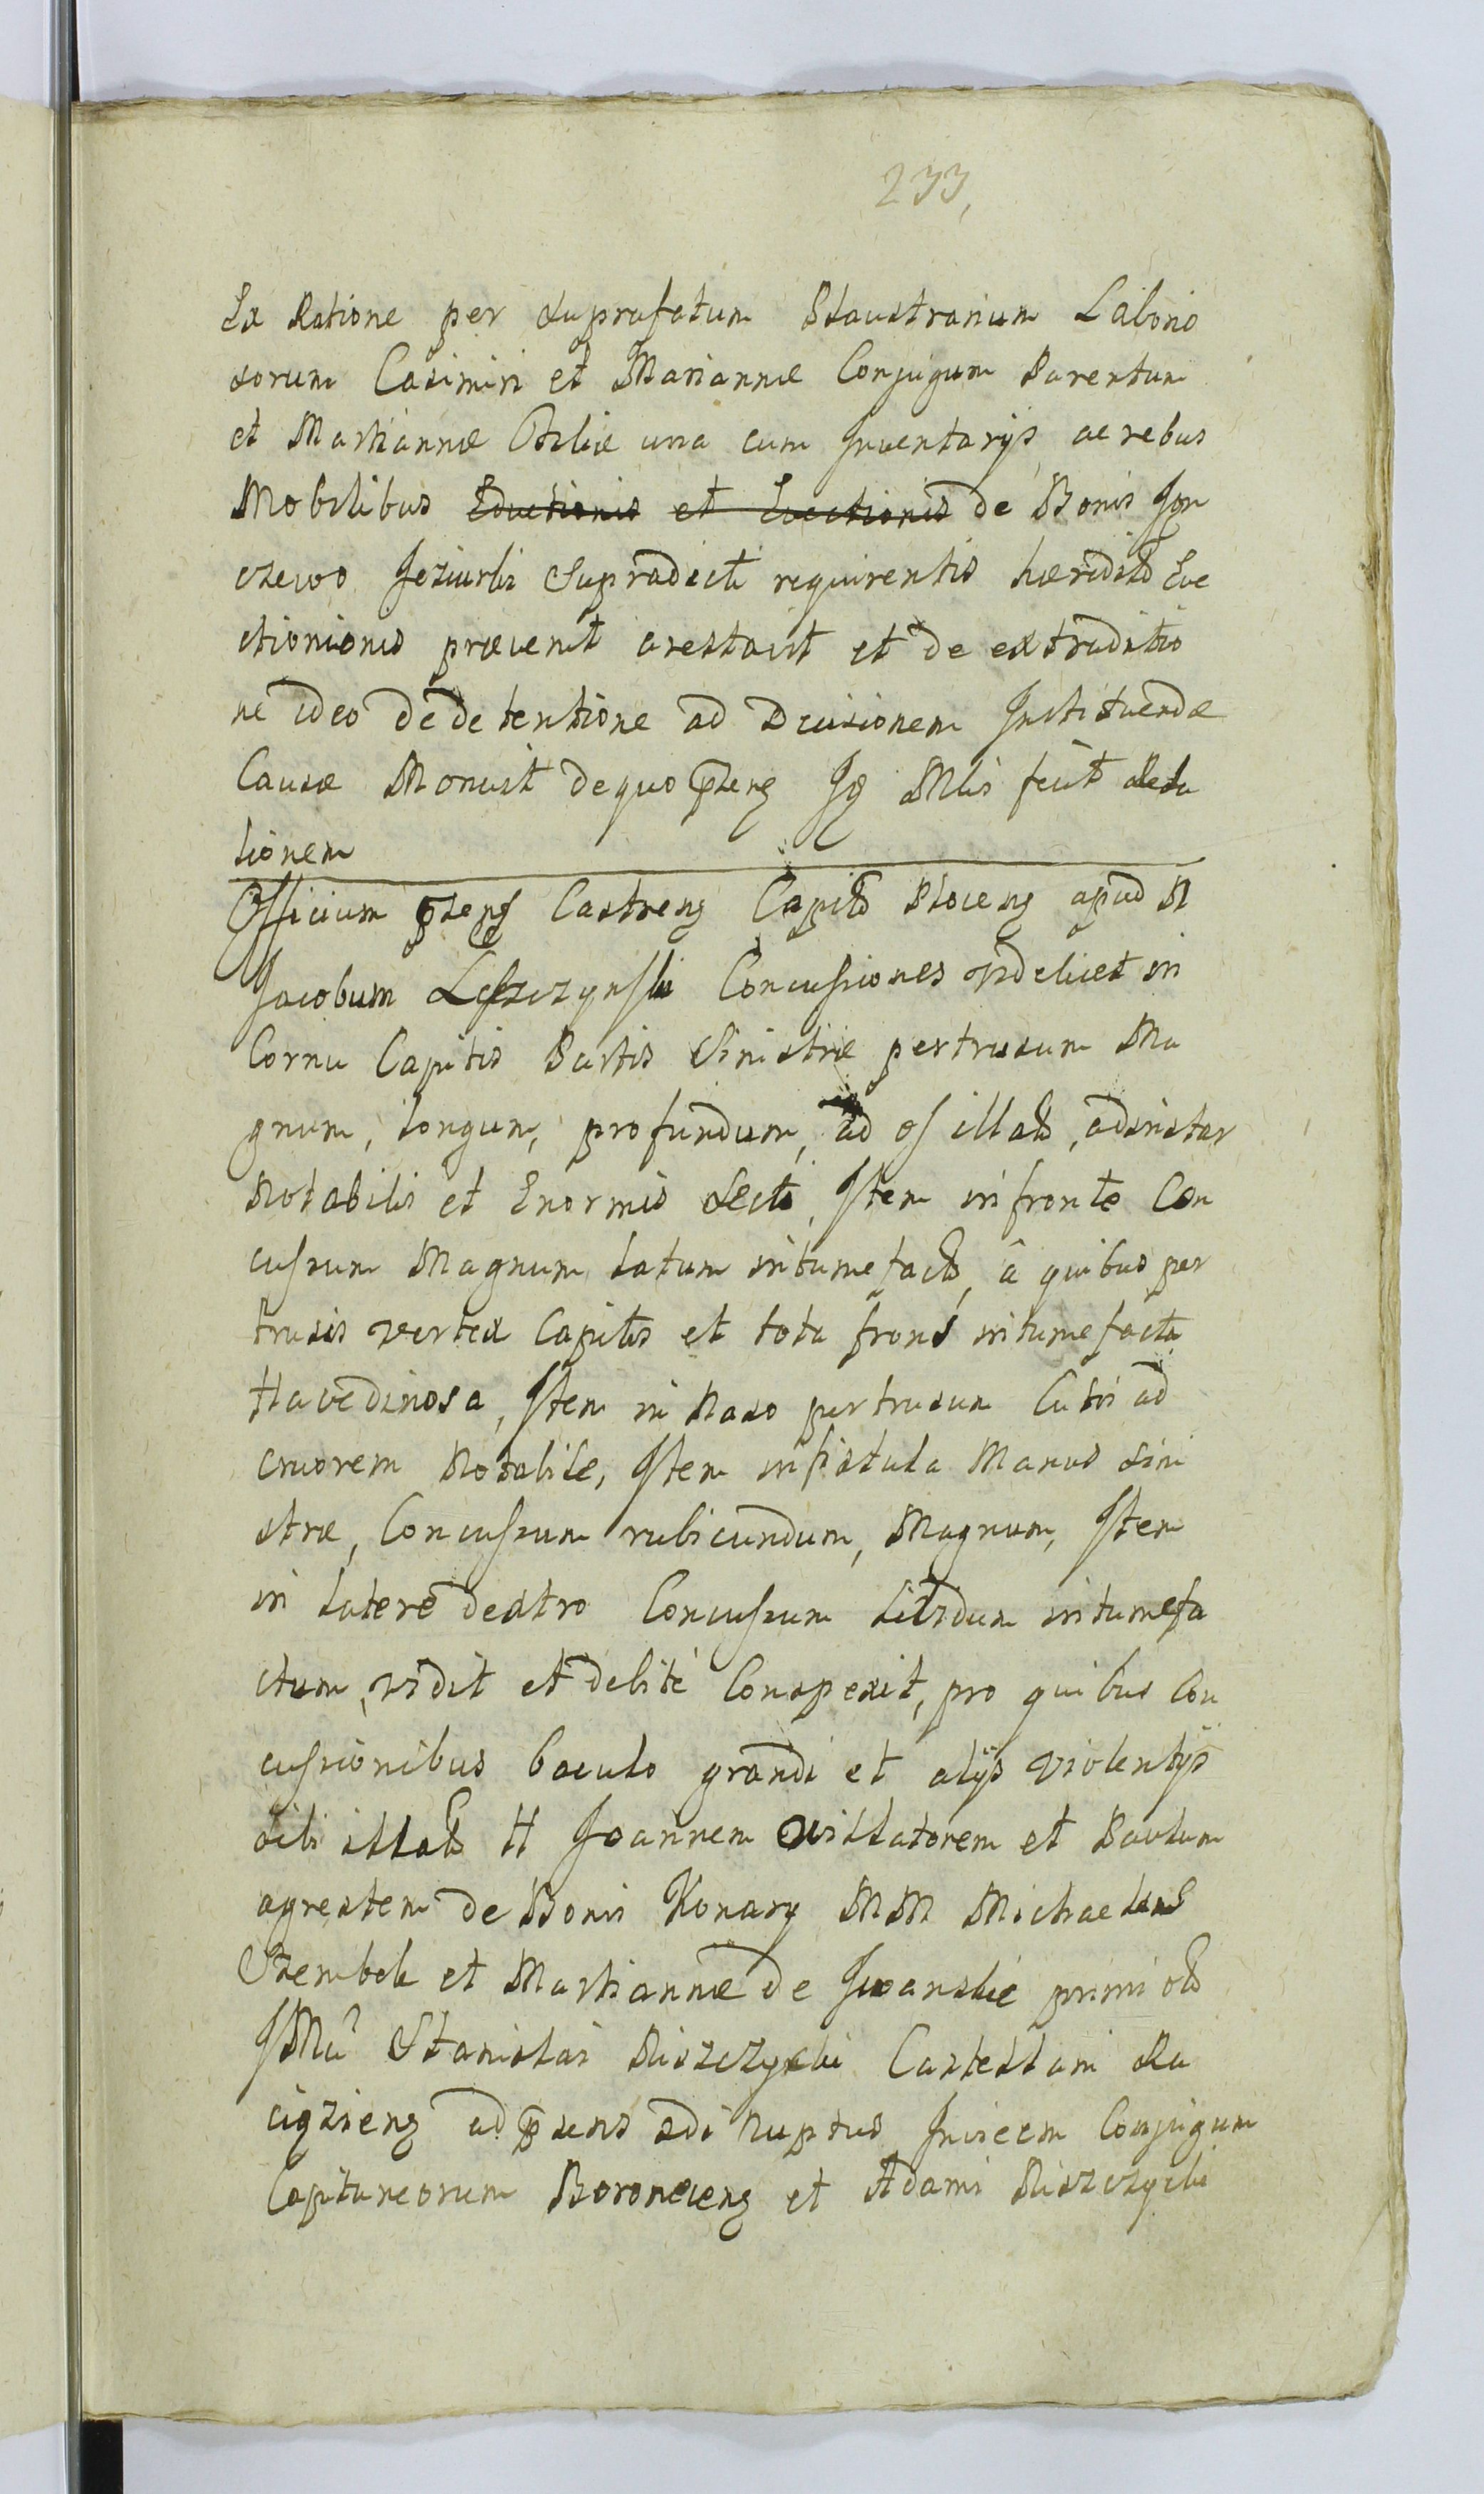 233,
Ex Ratione per suprafatum Claustrarium Laborio
sorum Casimiri et Mariannæ Conjugum Parentum
et Marhiannæ Ótiliæ una cum Inventarijs ac rebus
Mobilibus Eductionis et Evectionis de Bonis Jon
czewo Jeziurki Supradicti requirentis hæredits Eve
ctionionis prævenit arestavit et de extraditio
ne ideo de detentione ad Decisionem Instituendæ
Causæ Monuit de quo pñeng Jg Mlis fecit Rela
tionem
Officium pñens Castreng Capitło Ploceng apud N
Jacobum Leszczynski Concussiones videlicet in
Cornu Capitis Partis Sinistræ pertrusum Ma
gnum, longum, profundum, ad os illatũ, adinstar
Notabilis et Enormis Secti, Item in fronte Con
cussum Magnum latum intumefactũ, à quibus per
trusis vertex Capitis et tota frons intumefacta
flavedinosa, Item in Naso pertrusum Cutis ad
cruorem Notabile, Item in fistula Manus Sini
stræ, Concussum rubicundum, Magnum, Item
in latere dextro Concussum lividum intumefa
ctum, vidit et debité Conspexit, pro quibus Con
cussionibus baculo grandi et alijs violentijs
sibi illatis H Joannem Villatorem et Paulum
agrestem de Bonis Konary MM Michaelis
Szembek et Marhiannæ de primi
JMci Stanislai Niszczycki Castellani Ra
ciązieng ad pñsens nuptus Invicem Conjugum
Capitaneorum et Adami Niszczycki